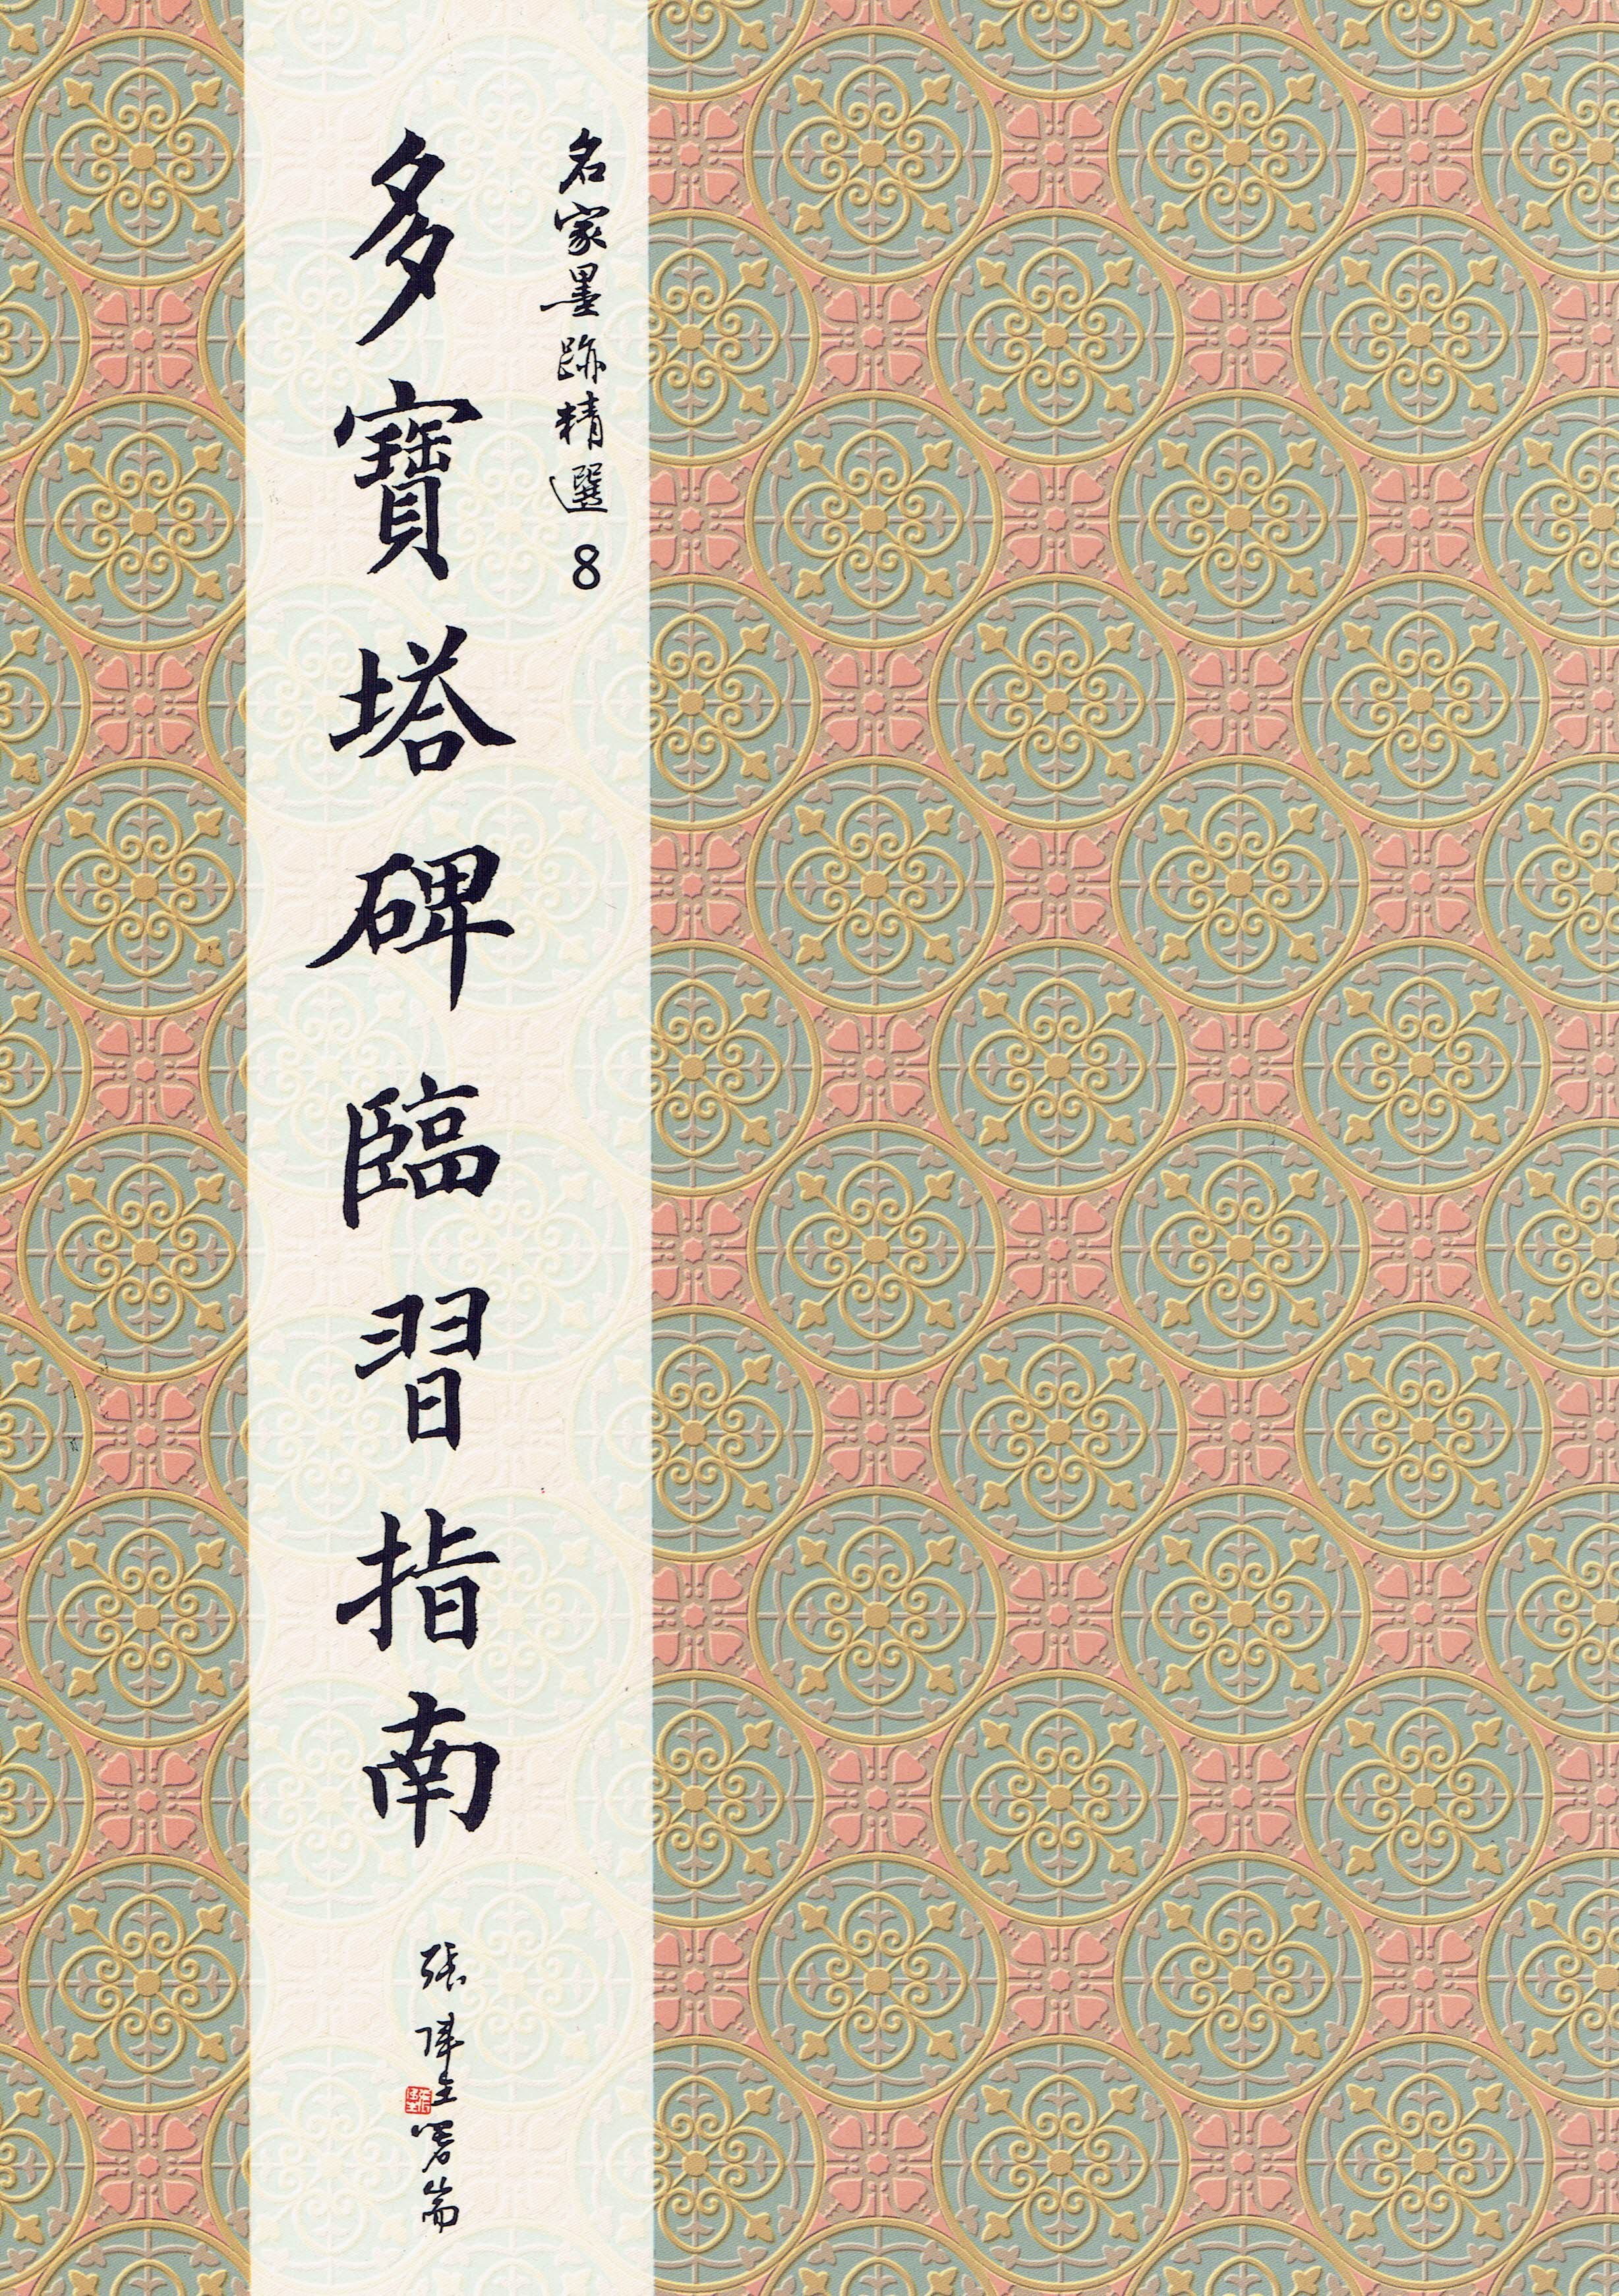 名家墨跡精選 8
多寶塔碑臨習指南
張